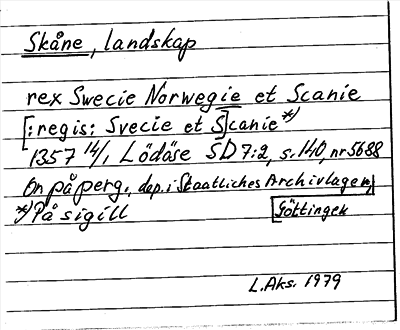 Skåne, landskap
rex Swecie Norwegie et Scanie
[:regis: Svecie et S]canie *)
1357 14/1 Lödöse SD 7:2, s. 140, nr 5688
On på perg., dep. i Staatliches Archivlager,
*) På sigill [Göttingen
L. Aks. 1979